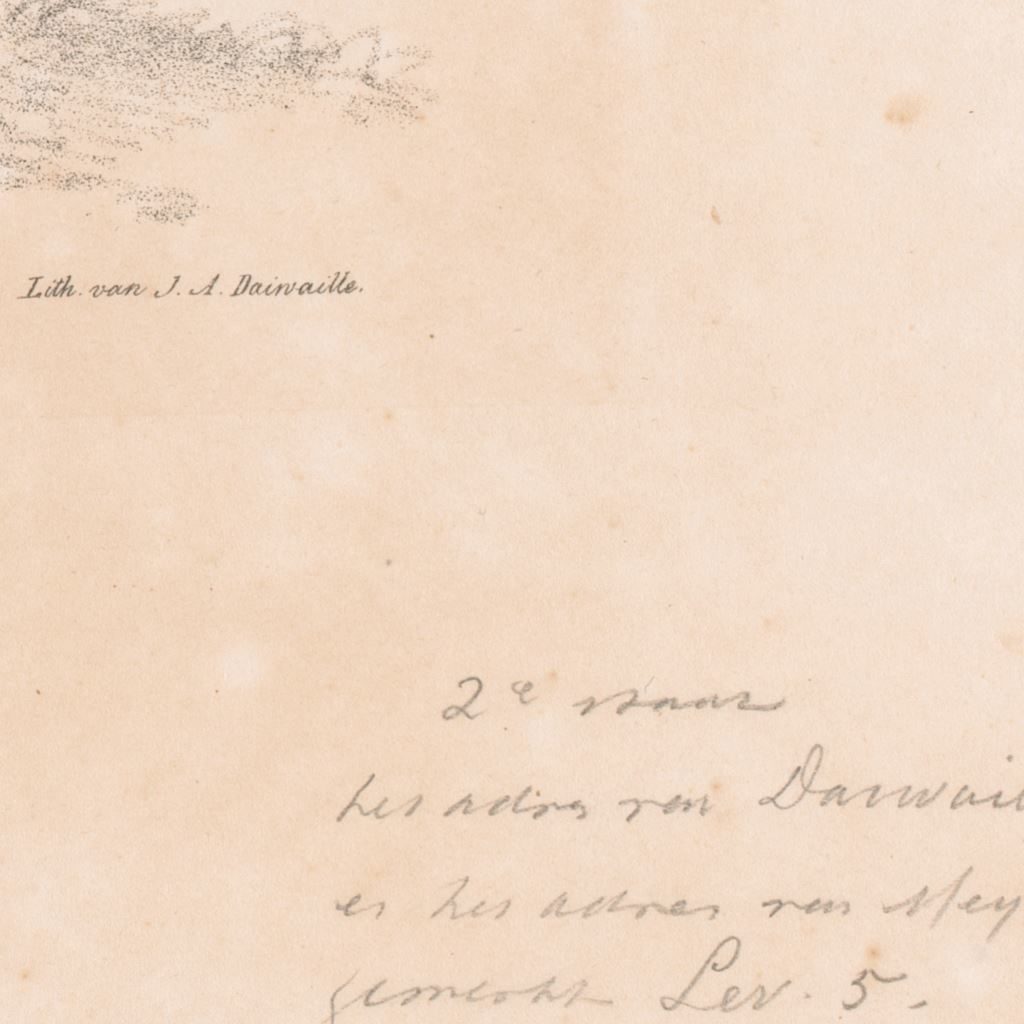 Lith. van J. A. Daiwaille.
2e staat
het adres van Daiwail
en het adres van Mey
gemerkt Lev. 5.